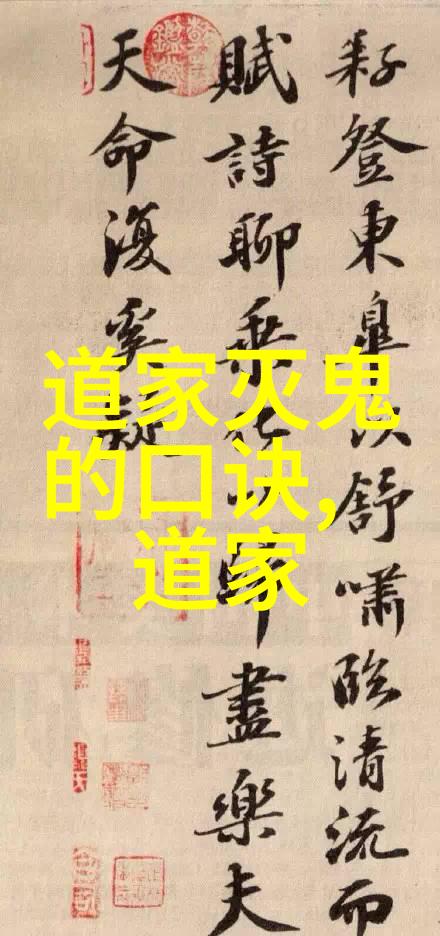 耔登東皐以舒嘯臨清流而
賦詩聊乘化以歸盡樂夫
天命復奚疑
道家灭鬼
的口诀,
道家